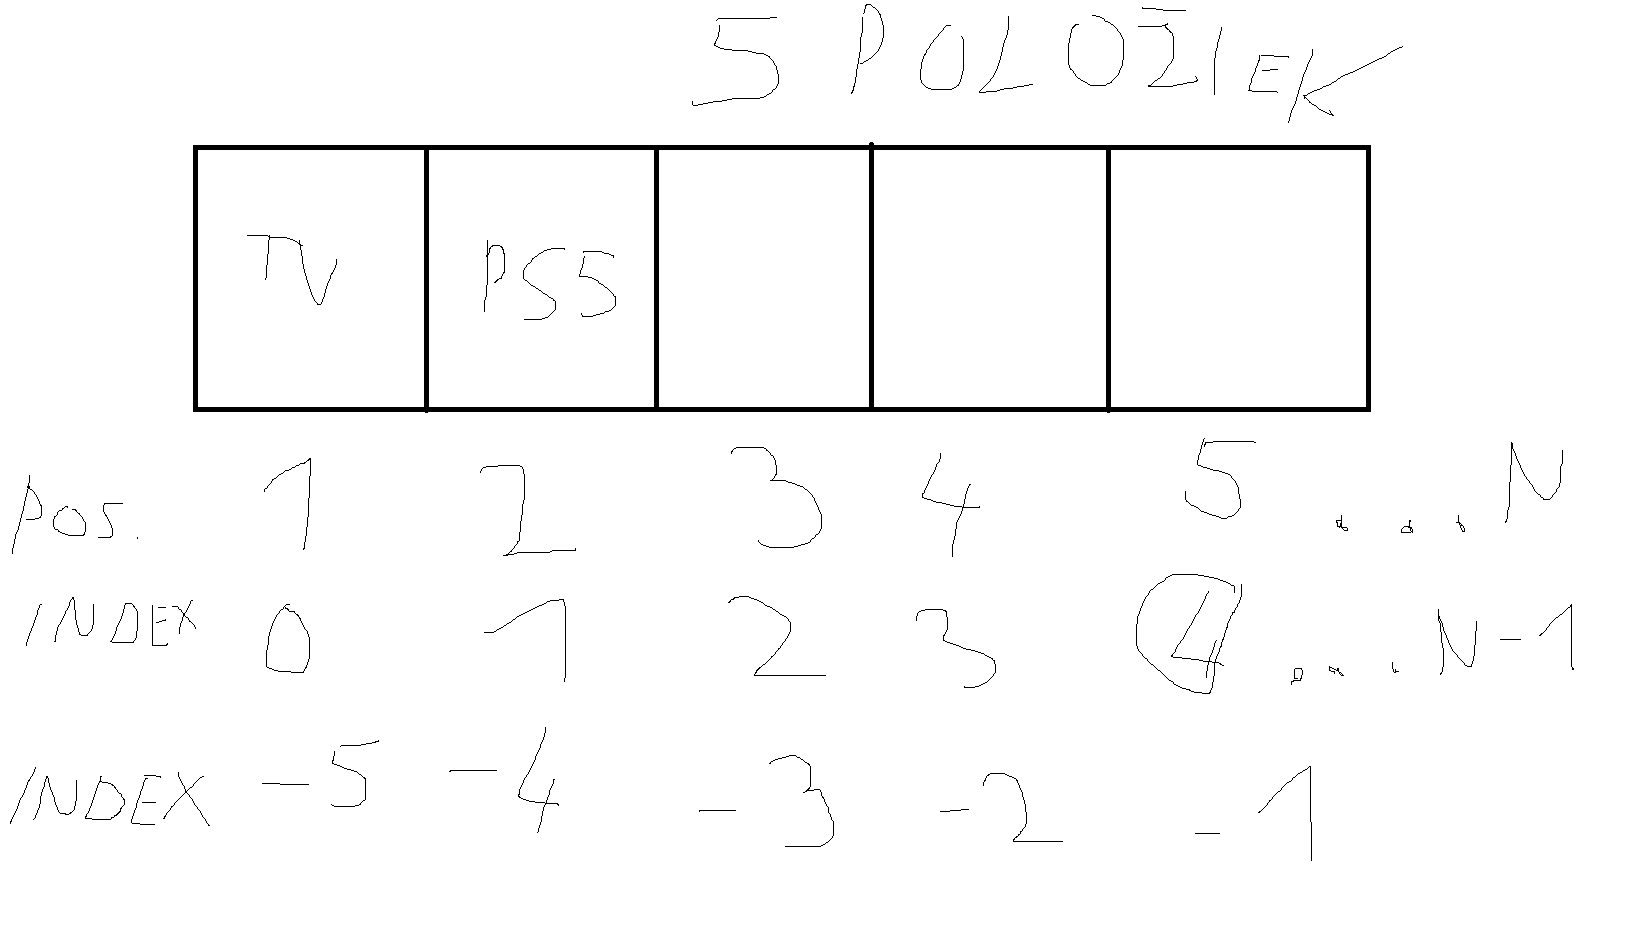 5 POLOŽIEK
TV PS5
POS. 1 2 3 4 5 ... N
INDEX 0 1 2 3 4 ... N-1
INDEX -5 -4 -3 -2 -1